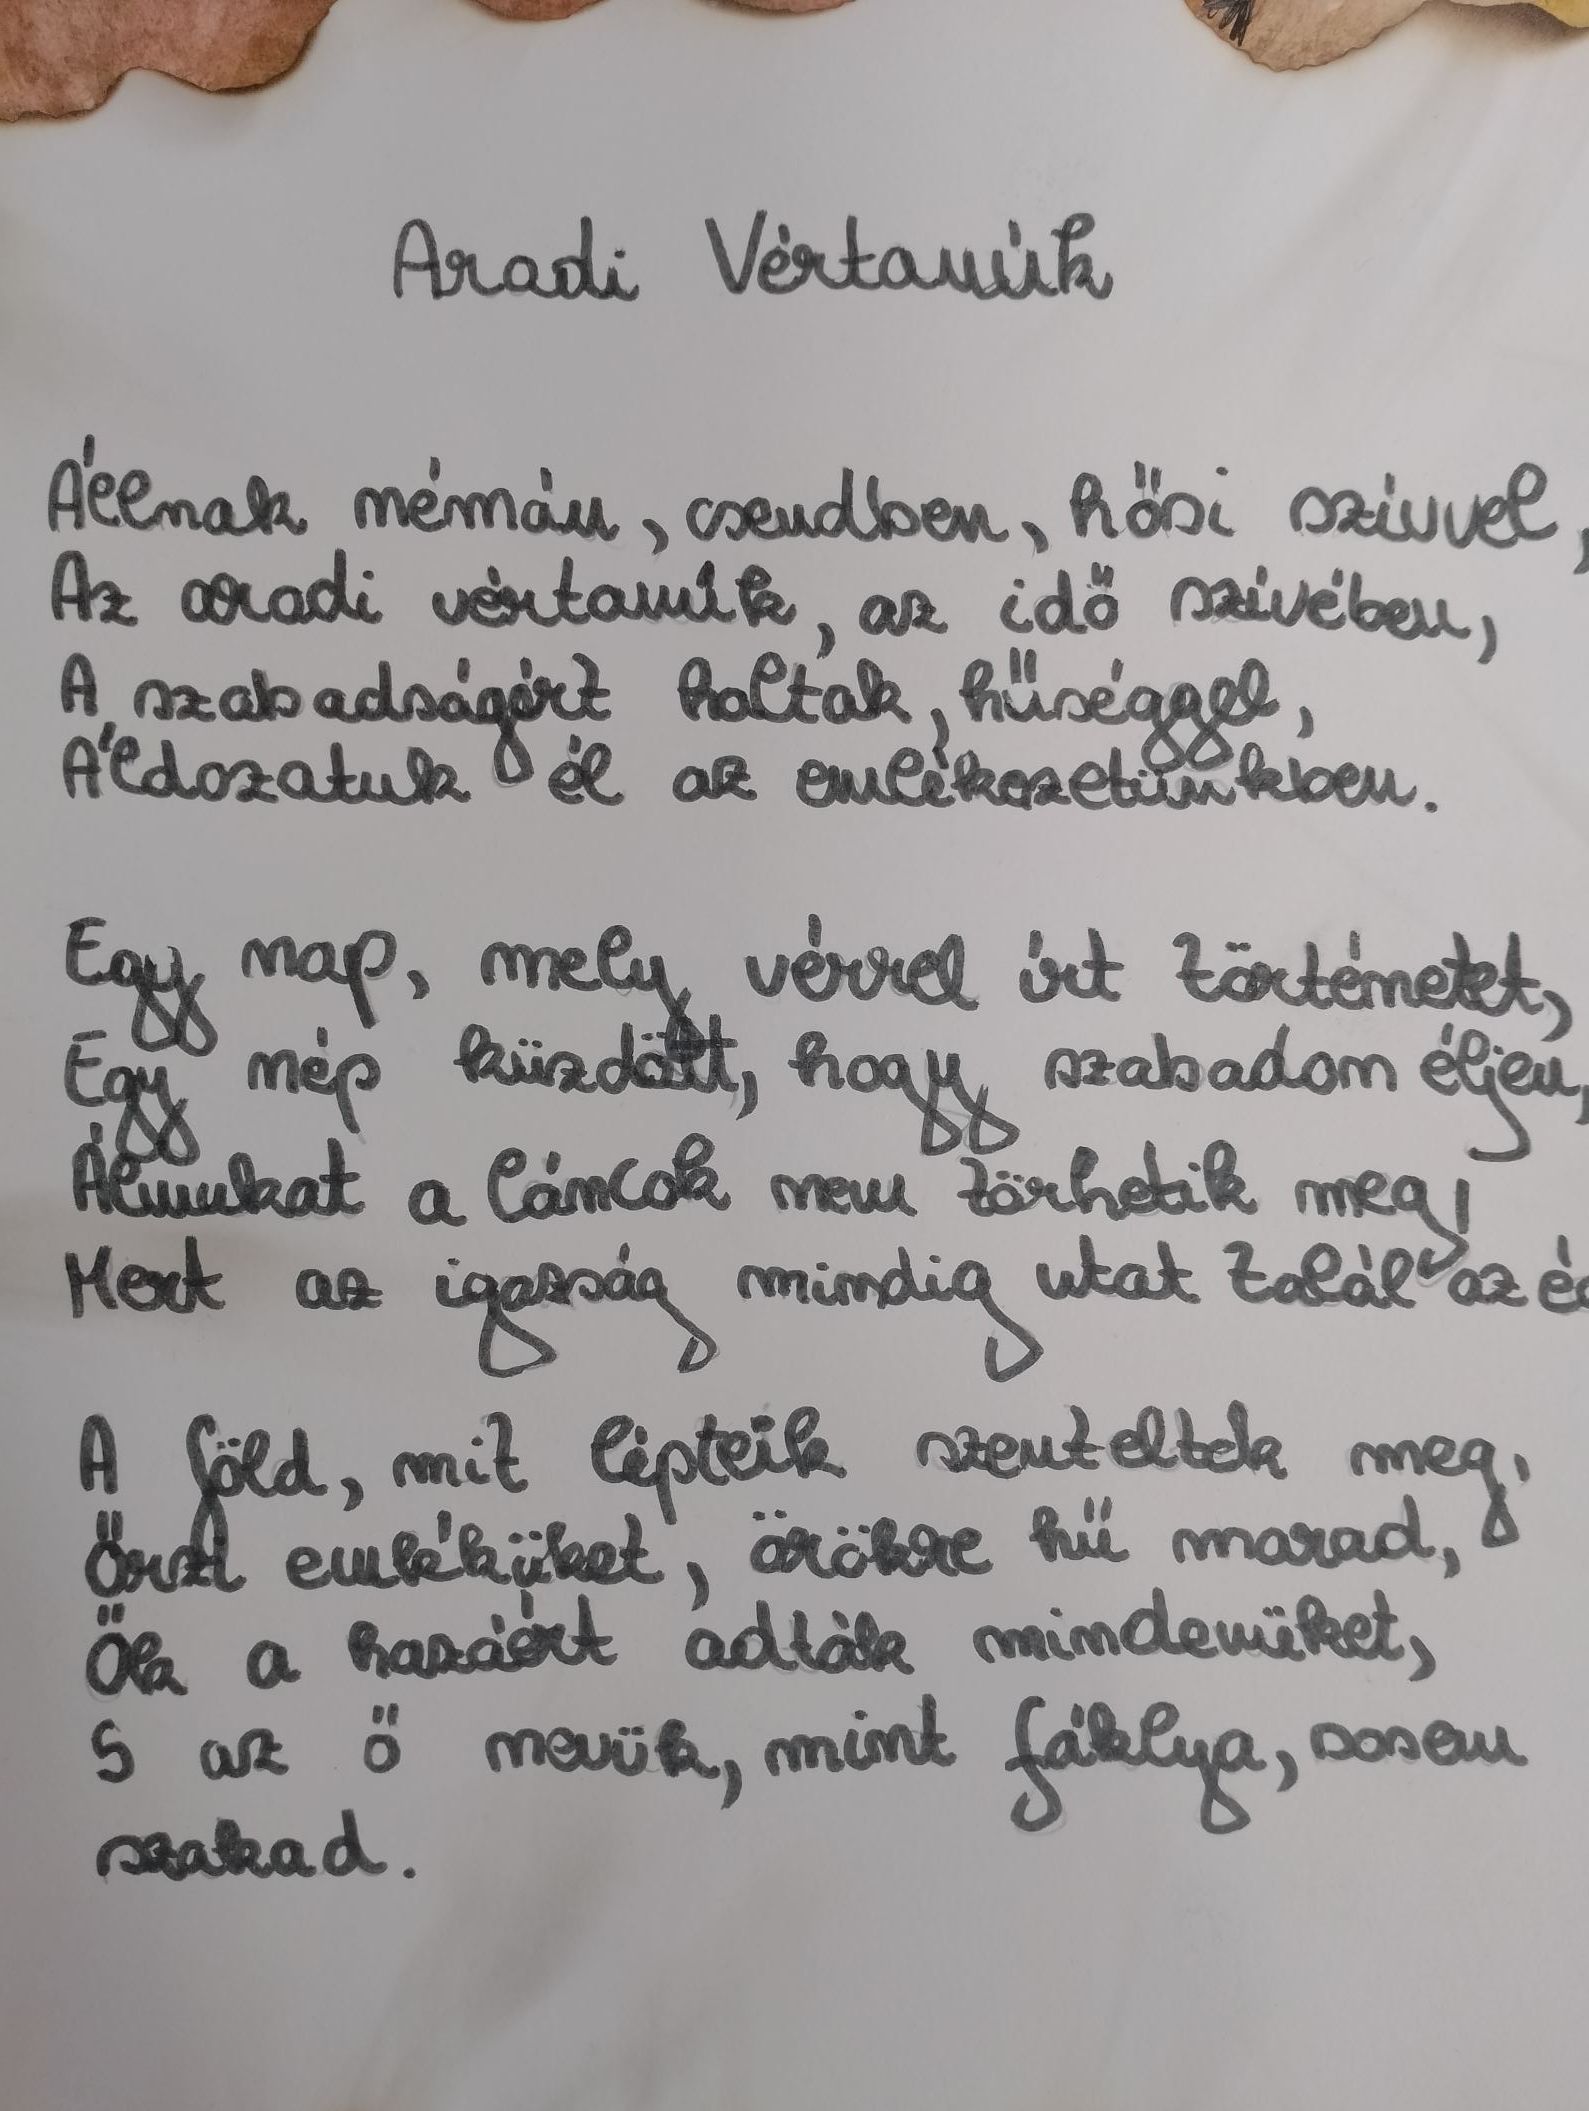 Aradi Vértanúk
Állnak némán, csendben, hősi szívvel,
Az aradi vértanúk, az idő szívében,
A szabadságért haltak, hűséggel,
Áldozatuk él az emlékezetünkben.
Egy nap, mely vérrel írt történetet,
Egy nép küzdött, hogy szabadon éljen,
Álmukat a láncok nem törhetik meg,
Mert az igazság mindig utat talál az
A föld, mit lépteik szenteltek meg,
Őrzi emléküket, örökre hű marad,
Ők a hazáért adták mindenüket,
S az ő nevük, mint fáklya, sosem
szakad.